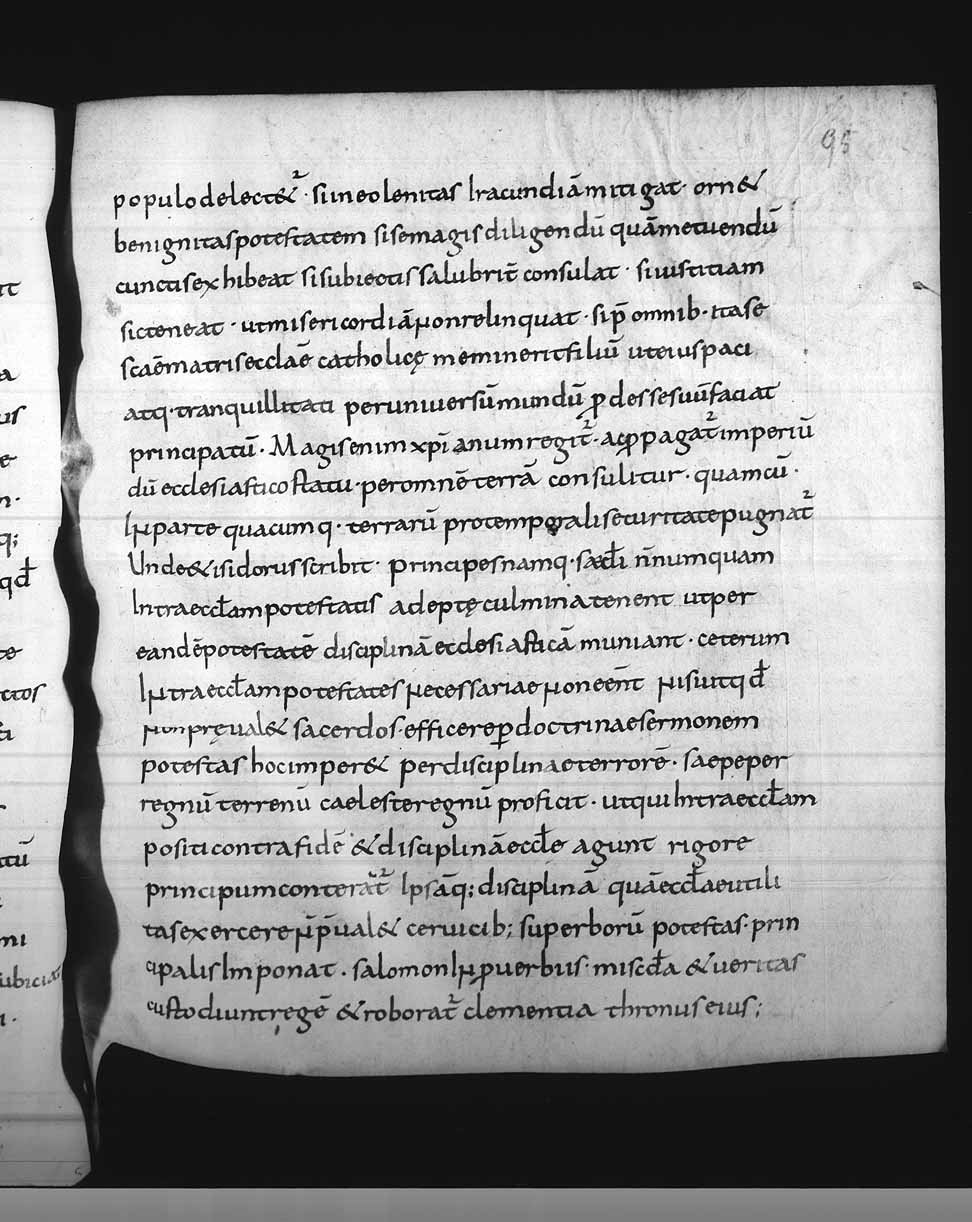 95
populo delect&ur · si in eo lenitas Iracundiā mitigat · orn&
benignitas potestatem si se magis diligendū quā metuendū
cunctis exhibeat si subiectis salubrit̄ consulat · si iustitiam
sic teneat · ut misericordiā non relinquat · si p̄ omnib · ita se
scāē matris ecclāē catholicę meminerit filiū ut eius paci
atq · tranquillitati per uniuersū mundū ꝓdesse suū faciat
principatū · Magis enim xp̄ianum regit᷑ · ac ꝓpagat᷑ imperiū
dū ecclesiastico statu · per omnē terrā consulitur · quam cū ·
In parte quacumq · terrarū pro temporali securitate pugnat᷑
Unde & isidorus scribit · principes namq · sæcl̄i n̄numquam
Intra eccl̄am potestatis adeptę culmina tenent ut per
eandē potestatē disciplinā ecclesiasticā muniant · ceterum
Intra eccl̄am potestates necessariae non eēnt nisi ut qd̄
non pręual& sacerdos · efficere ꝑ doctrinae sermonem
potestas hoc imper& per disciplinae terrorē · saepe per
regnū terrenū caeleste regnū proficit · ut qui Intra eccl̄am
positi contra fidē & disciplinā eccl̄e agunt rigore
principum conterāt᷑ Ipsāq; disciplinā quā eccl̄ae utili
tas exercere n̄ p̄ual& ceruicib; superborū potestas · prin
cipalis Imponat · salomon In ꝓuerbiis · miscd̄a & ueritas
custodiunt regē & roborat᷑ clementia thronus eius ;